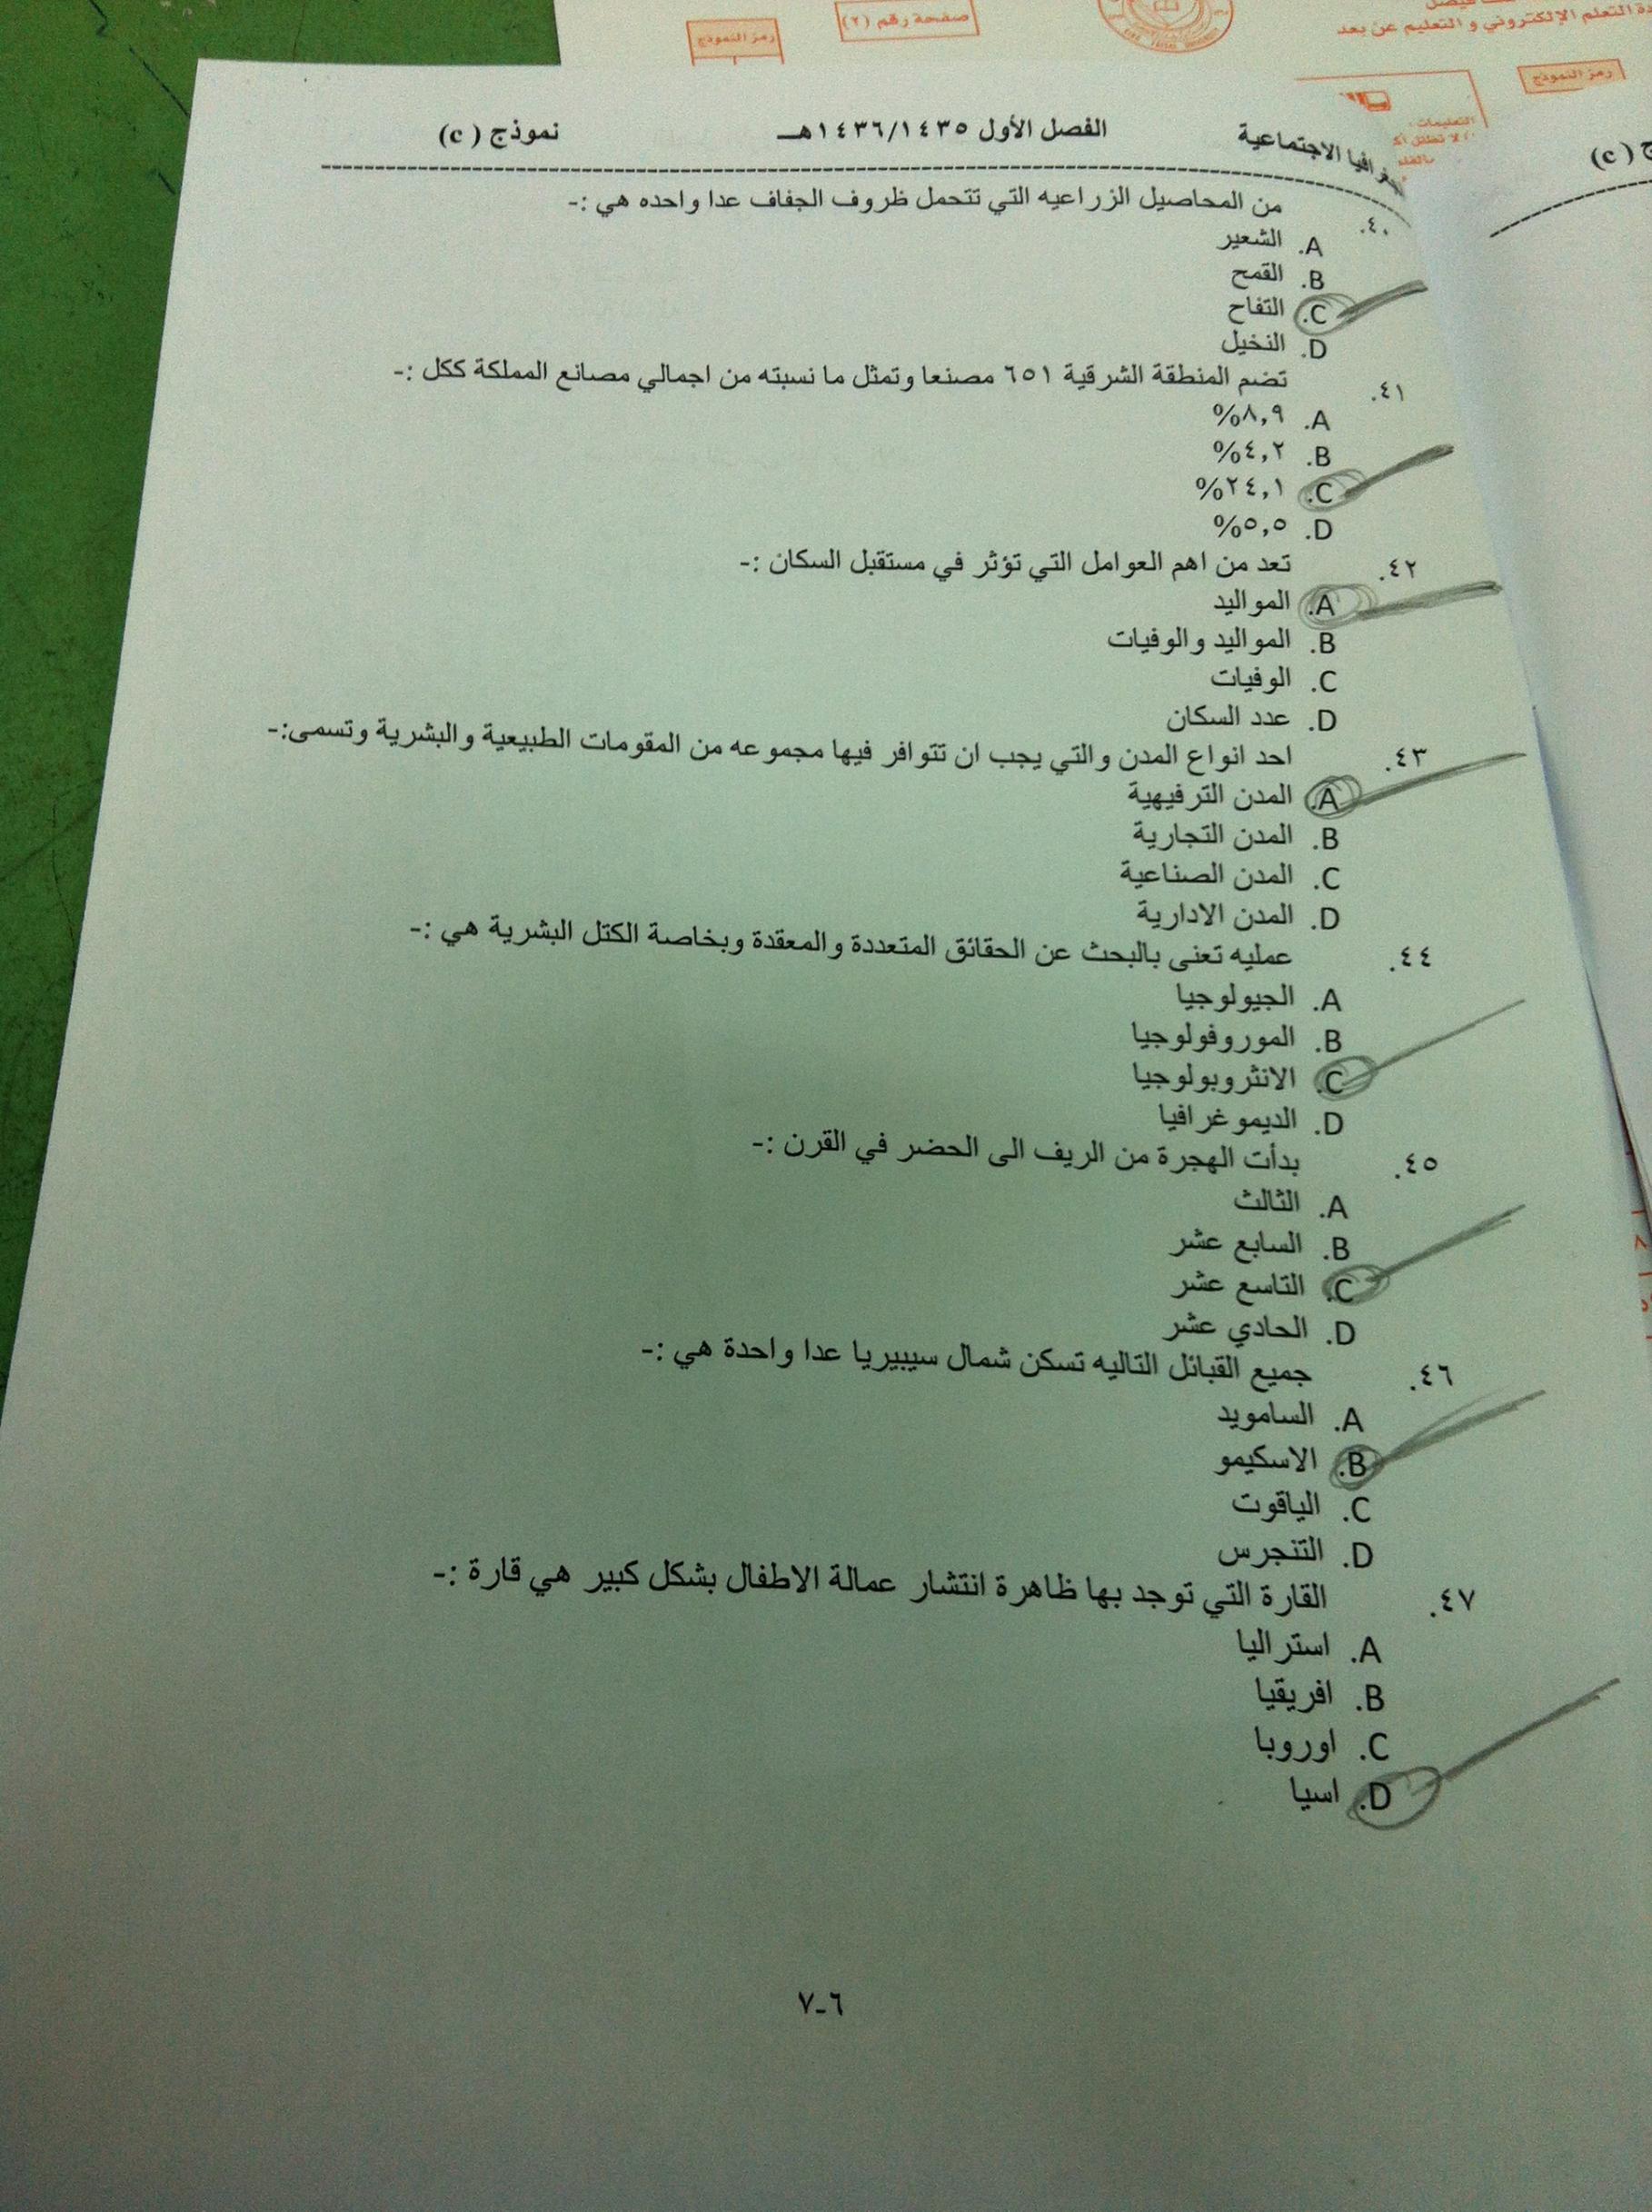 صفحة رقم (٢)
رمز النموذج
التعلم الإلكتروني و التعليم عن بعد
رمز النموذج
التعليمات :
(c)
الاجتماعية
الفصل الأول ١٤٣٦/١٤٣٥هـ
نموذج ( c )
٤٠. من المحاصيل الزراعيه التي تتحمل ظروف الجفاف عدا واحده هي :-
A. الشعير
B. القمح
C. التفاح
D. النخيل
٤١. تضم المنطقة الشرقية ٦٥١ مصنعا وتمثل ما نسبته من اجمالي مصانع المملكة ككل :-
A. ٨,٩%
B. ٤,٢%
C. ٢٤,١%
D. ٥,٥%
٤٢. تعد من اهم العوامل التي تؤثر في مستقبل السكان :-
A. المواليد
B. المواليد والوفيات
C. الوفيات
D. عدد السكان
٤٣. احد انواع المدن والتي يجب ان تتوافر فيها مجموعه من المقومات الطبيعية والبشرية وتسمى:-
A. المدن الترفيهية
B. المدن التجارية
C. المدن الصناعية
D. المدن الادارية
٤٤. عمليه تعنى بالبحث عن الحقائق المتعددة والمعقدة وبخاصة الكتل البشرية هي :-
A. الجيولوجيا
B. الموروفولوجيا
C. الانثروبولوجيا
D. الديموغرافيا
٤٥. بدأت الهجرة من الريف الى الحضر في القرن :-
A. الثالث
B. السابع عشر
C. التاسع عشر
D. الحادي عشر
٤٦. جميع القبائل التاليه تسكن شمال سيبيريا عدا واحدة هي :-
A. السامويد
B. الاسكيمو
C. الياقوت
D. التنجرس
٤٧. القارة التي توجد بها ظاهرة انتشار عمالة الاطفال بشكل كبير هي قارة :-
A. استراليا
B. افريقيا
C. اوروبا
D. اسيا
٦-٧